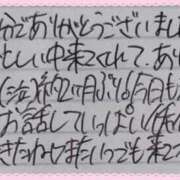 分でありがとうございまし
としい中来てくれて、あり
(泣)約2ヶ月ぶり！今日も
お話していっぱい
きたわ またいつでも来て